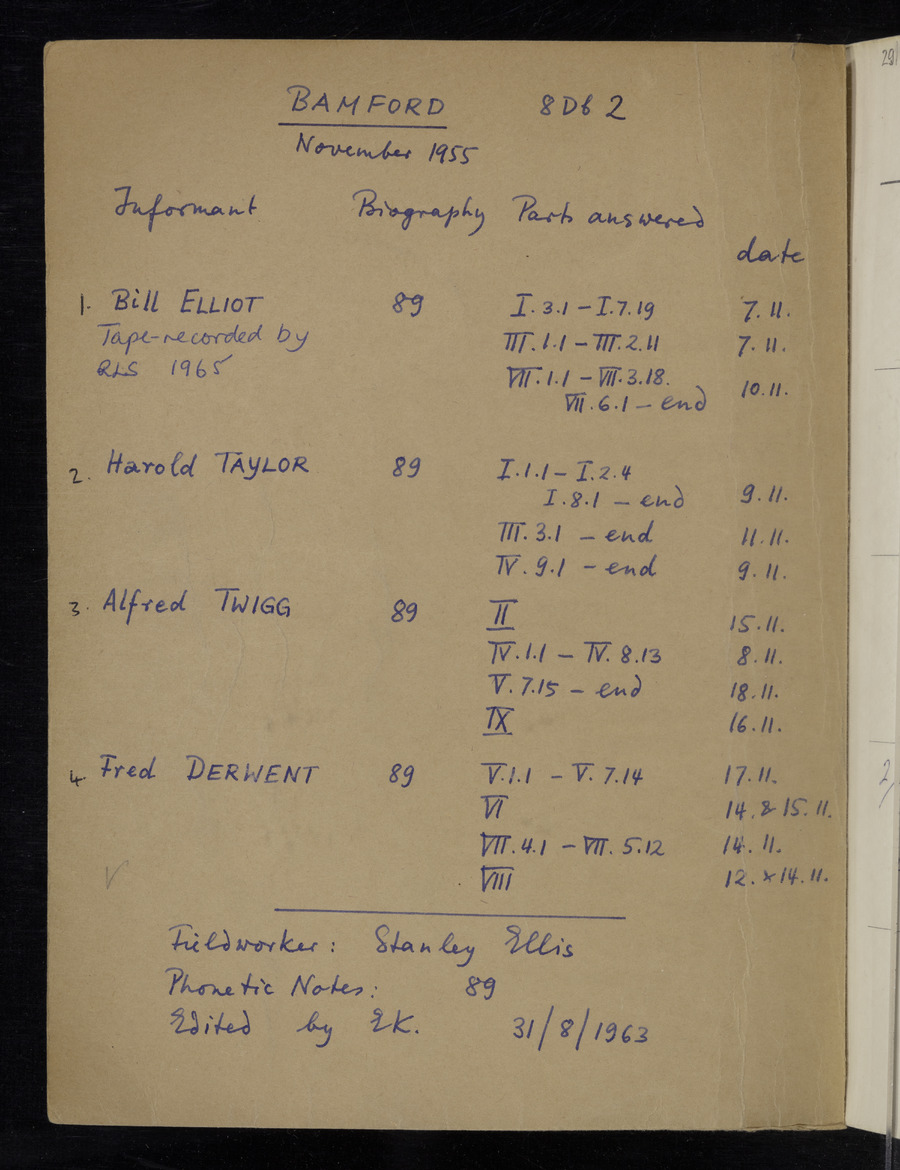 BAMFORD 8Db2
November 1955
Informant Biography Parts answered
date
1. Bill ELLIOT 89 I.3.1 – I.7.19 7.11.
Tape-recorded by III.1.1 – III.2.11 7.11.
RLS 1965 VII.1.1 – VII.3.18. 10.11.
VII.6.1 – end
2. Harold TAYLOR 89 I.1.1 – I.2.4
I.8.1 – end 9.11.
III.3.1 – end 11.11.
IV.9.1 – end 9.11.
3. Alfred TWIGG 89 II 15.11.
IV.1.1 – IV.8.13 8.11.
V.7.15 – end 18.11.
IX 16.11.
4. Fred DERWENT 89 V.1.1 – V.7.14 17.11.
VI 14.&15.11.
VII.4.1 – VII.5.12 14.11.
VIII 12.+14.11.
Fieldworker: Stanley Ellis
Phonetic Notes: 89
Edited by EK. 31/8/1963